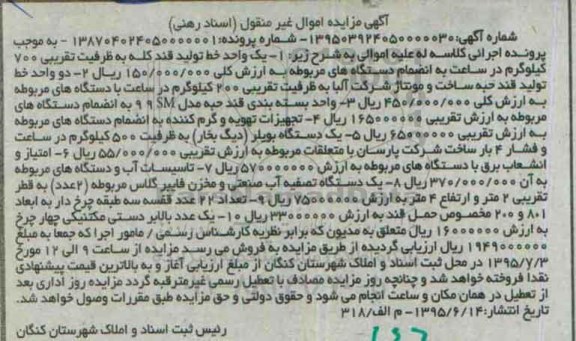 آگهی مزایده اموال غیر منقول (اسناد رهنی)
شماره آگهی:۱۳۹۵۰۳۹۲۴۰۵۰۰۰۰۰۳۰- شماره پرونده:۱۳۸۷۰۴۰۲۴۰۵۰۰۰۰۰۰۱ - به موجب
پرونده اجرائی کلاسه له علیه اموالی به شرح زیر: ۱-یک واحد خط تولید قند کله به ظرفیت تقریبی ۷۰۰
کیلوگرم در ساعت به انضمام دستگاه های مربوطه به ارزش کلی ۱۵۰/۰۰۰/۰۰۰ ریال ۲-دو واحد خط
تولید قند حبه ساخت و مونتاژ شرکت آلبا به ظرفیت تقریبی ۲۰۰ کیلوگرم در ساعت با دستگاه های مربوطه
به ارزش کلی ۴۵۰/۰۰۰/۰۰۰ ریال ۳-واحد بسته بندی قند حبه مدل SM ۹ ۹ به انضمام دستگاه های
مربوطه به ارزش تقریبی ۱۶۵۰۰۰۰۰۰ ۴- تجهیزات تهویه و گرم کننده به انضمام دستگاه های مربوطه
به ارزش تقریبی ۶۵۰۰۰۰۰۰ ریال ۵-یک دستگاه بویلر (دیگ بخار) به ظرفیت ۵۰۰ کیلوگرم در ساعت
و فشار ۴ بار ساخت شرکت پارسان با متعلقات مربوطه به ارزش تقریبی ۵۵/۰۰۰/۰۰۰ ریال ۶- امتیاز و
انشعاب برق با دستگاه های مربوطه به ارزش ۵۷۰۰۰۰۰۰۰ ریال ۷- تاسیسات آب و دستگاه های مربوطه
به آن ۳۷۰/۰۰۰/۰۰۰ ریال ۸-یک دستگاه تصفیه آب صنعتی و مخزن فایبر گلاس مربوطه (۲عدد) به قطر
تقریبی ۲ متر و ارتفاع ۴ متر به ارزش ۷۵۰۰۰۰۰۰ ریال ۹- تعداد ۲۲ عدد قفسه سه طبقه چرخ دار به ابعاد
۸۰۱ و ۲۰۰ مخصوص حمل قند به ارزش ۳۳۰۰۰۰۰۰ ریال ۱۰-یک عدد بالابر دستی مکتنیکی چهار چرخ
به ارزش ۱۶۰۰۰۰۰۰ ریال متعلق به مدیون که برابر نظریه کارشناس رسمی / مامور اجرا که جمعا به مبلغ
۱۹۴۹۰۰۰۰۰۰ ریال ارزیابی گردیده از طریق مزایده به فروش می رسد مزایده از ساعت ۹ الی ۱۲ مورخ
۱۳۹۵/۷/۳ در محل ثبت اسناد و املاک شهرستان کنگان از مبلغ ارزیابی آغاز و به بالاترین قیمت پیشنهادی
نقدا فروخته خواهد شد و چنانچه روز مزایده مصادف با تعطیل رسمی غیرمترقبه گردد مزایده روز اداری بعد
از تعطیل در همان مکان و ساعت انجام می شود و حقوق دولتی و حق مزایده طبق مقررات وصول خواهد شد.
تاریخ انتشار: ۱۳۹۵/۶/۱۴- م الف/۳۱۸
رئیس ثبت اسناد و املاک شهرستان کنگان